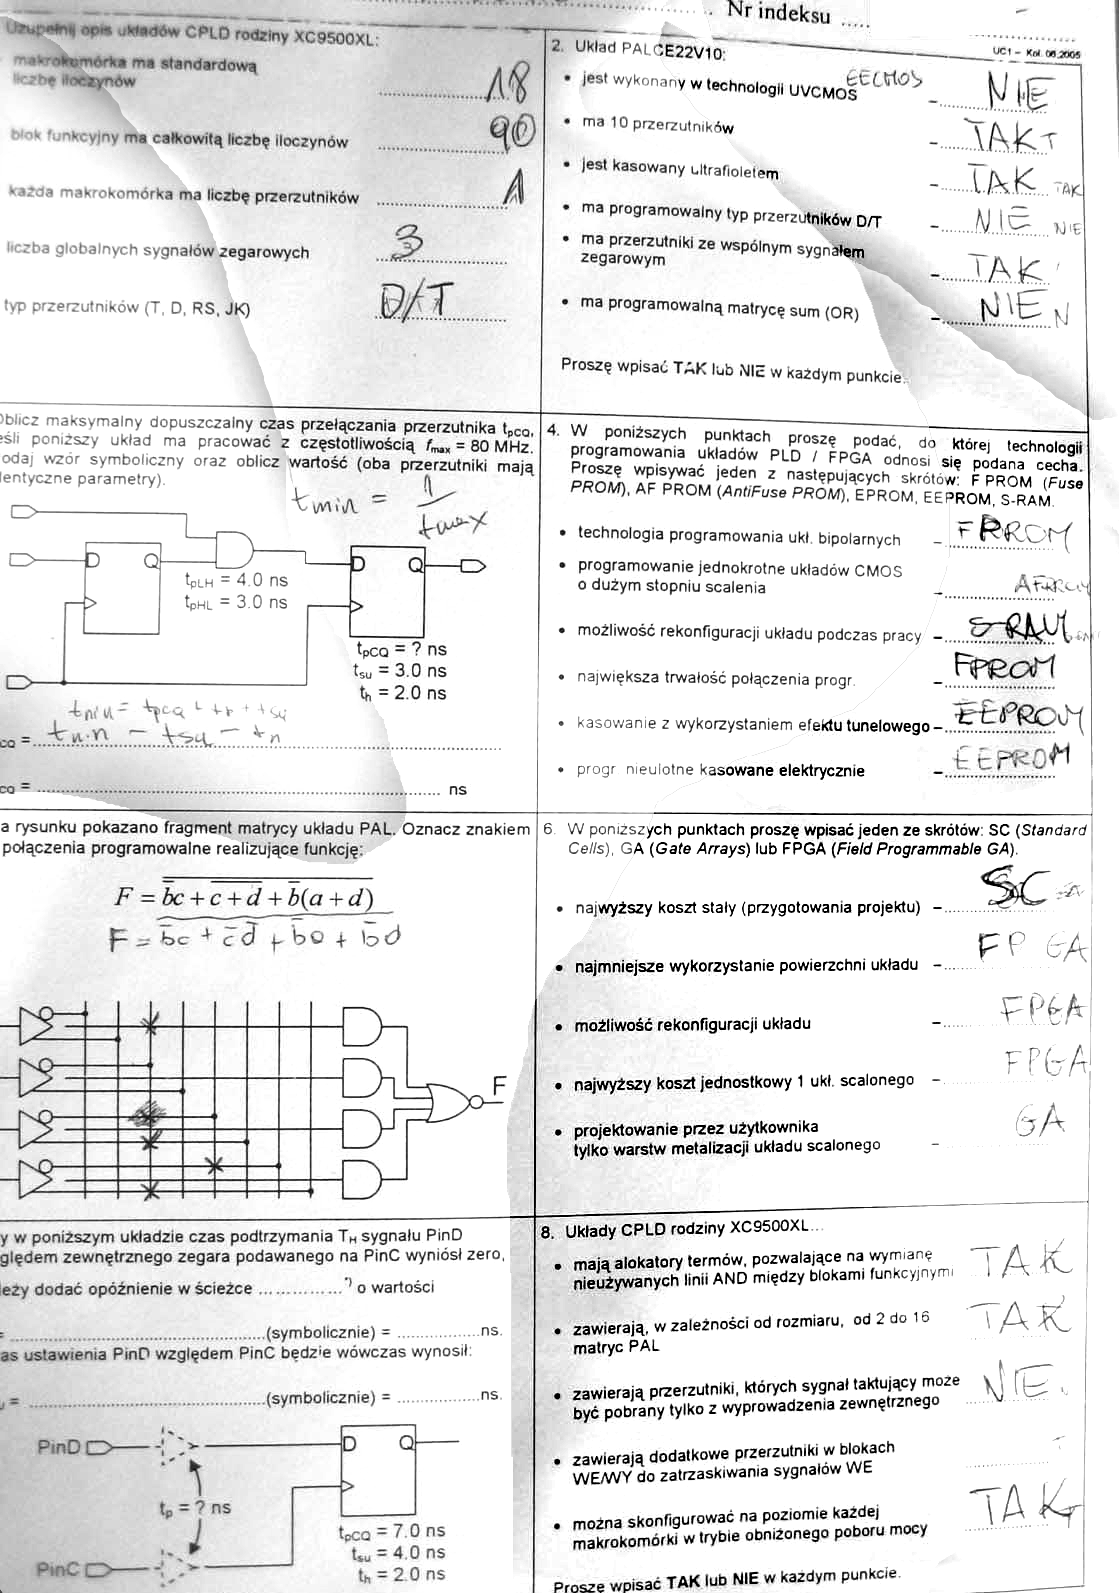 Nr indeksu .....
UC1 - Kol. 06.2005
Uzupełnij opis układów CPLD rodziny XC9500XL:
makrokomórka ma standardową
liczbę iloczynów 18
blok funkcyjny ma całkowitą liczbę iloczynów 90
każda makrokomórka ma liczbę przerzutników 1
liczba globalnych sygnałów zegarowych 3
typ przerzutników (T, D, RS, JK) D/T
2. Układ PALCE22V10:
EECMOS
• jest wykonany w technologii UVCMOS - NIE
• ma 10 przerzutników - TAK T
• jest kasowany ultrafioletem - TAK TAK
• ma programowalny typ przerzutników D/T - NIE NIE
• ma przerzutniki ze wspólnym sygnałem
zegarowym - TAK
• ma programowalną matrycę sum (OR) - NIE N
Proszę wpisać TAK lub NIE w każdym punkcie.
Oblicz maksymalny dopuszczalny czas przełączania przerzutnika tPCQ,
eśli poniższy układ ma pracować z częstotliwością fmax = 80 MHz.
odaj wzór symboliczny oraz oblicz wartość (oba przerzutniki mają
entyczne parametry).
tmin = 1/fmax
D Q
tpLH = 4.0 ns
tpHL = 3.0 ns
D Q
tpCQ = ? ns
tsu = 3.0 ns
th = 2.0 ns
CQ = tmin - tsu - tn
CQ = ns
4. W poniższych punktach proszę podać, do której technologii
programowania układów PLD / FPGA odnosi się podana cecha.
Proszę wpisywać jeden z następujących skrótów: F PROM (Fuse
PROM), AF PROM (AntiFuse PROM), EPROM, EEPROM, S-RAM.
• technologia programowania ukł. bipolarnych - FPROM
• programowanie jednokrotne układów CMOS
o dużym stopniu scalenia - AFPROM
• możliwość rekonfiguracji układu podczas pracy - S-RAM
• największa trwałość połączenia progr. - FPROM
• kasowanie z wykorzystaniem efektu tunelowego - EEPROM
• progr nieulotne kasowane elektrycznie - EEPROM
a rysunku pokazano fragment matrycy układu PAL. Oznacz znakiem
połączenia programowalne realizujące funkcję:
F = bc + c + d + b(a + d)
F = bc + cd + ba + bd
F
6. W poniższych punktach proszę wpisać jeden ze skrótów: SC (Standard
Cells), GA (Gate Arrays) lub FPGA (Field Programmable GA).
• najwyższy koszt stały (przygotowania projektu) - SC
• najmniejsze wykorzystanie powierzchni układu - FPGA
• możliwość rekonfiguracji układu - FPGA
• najwyższy koszt jednostkowy 1 ukł. scalonego - FPGA
• projektowanie przez użytkownika
tylko warstw metalizacji układu scalonego - GA
y w poniższym układzie czas podtrzymania TH sygnału PinD
ględem zewnętrznego zegara podawanego na PinC wyniósł zero,
eży dodać opóźnienie w ścieżce ............... *) o wartości
= (symbolicznie) = ns.
as ustawienia PinD względem PinC będzie wówczas wynosił:
= (symbolicznie) = ns.
PinD
D Q
tp = ? ns
PinC
tpCQ = 7.0 ns
tsu = 4.0 ns
th = 2.0 ns
8. Układy CPLD rodziny XC9500XL...
• mają alokatory termów, pozwalające na wymianę
nieużywanych linii AND między blokami funkcyjnymi TAK
• zawierają, w zależności od rozmiaru, od 2 do 16
matryc PAL TAK
• zawierają przerzutniki, których sygnał taktujący może
być pobrany tylko z wyprowadzenia zewnętrznego NIE
• zawierają dodatkowe przerzutniki w blokach
WE/WY do zatrzaskiwania sygnałów WE
• można skonfigurować na poziomie każdej
makrokomórki w trybie obniżonego poboru mocy TAK
Proszę wpisać TAK lub NIE w każdym punkcie.